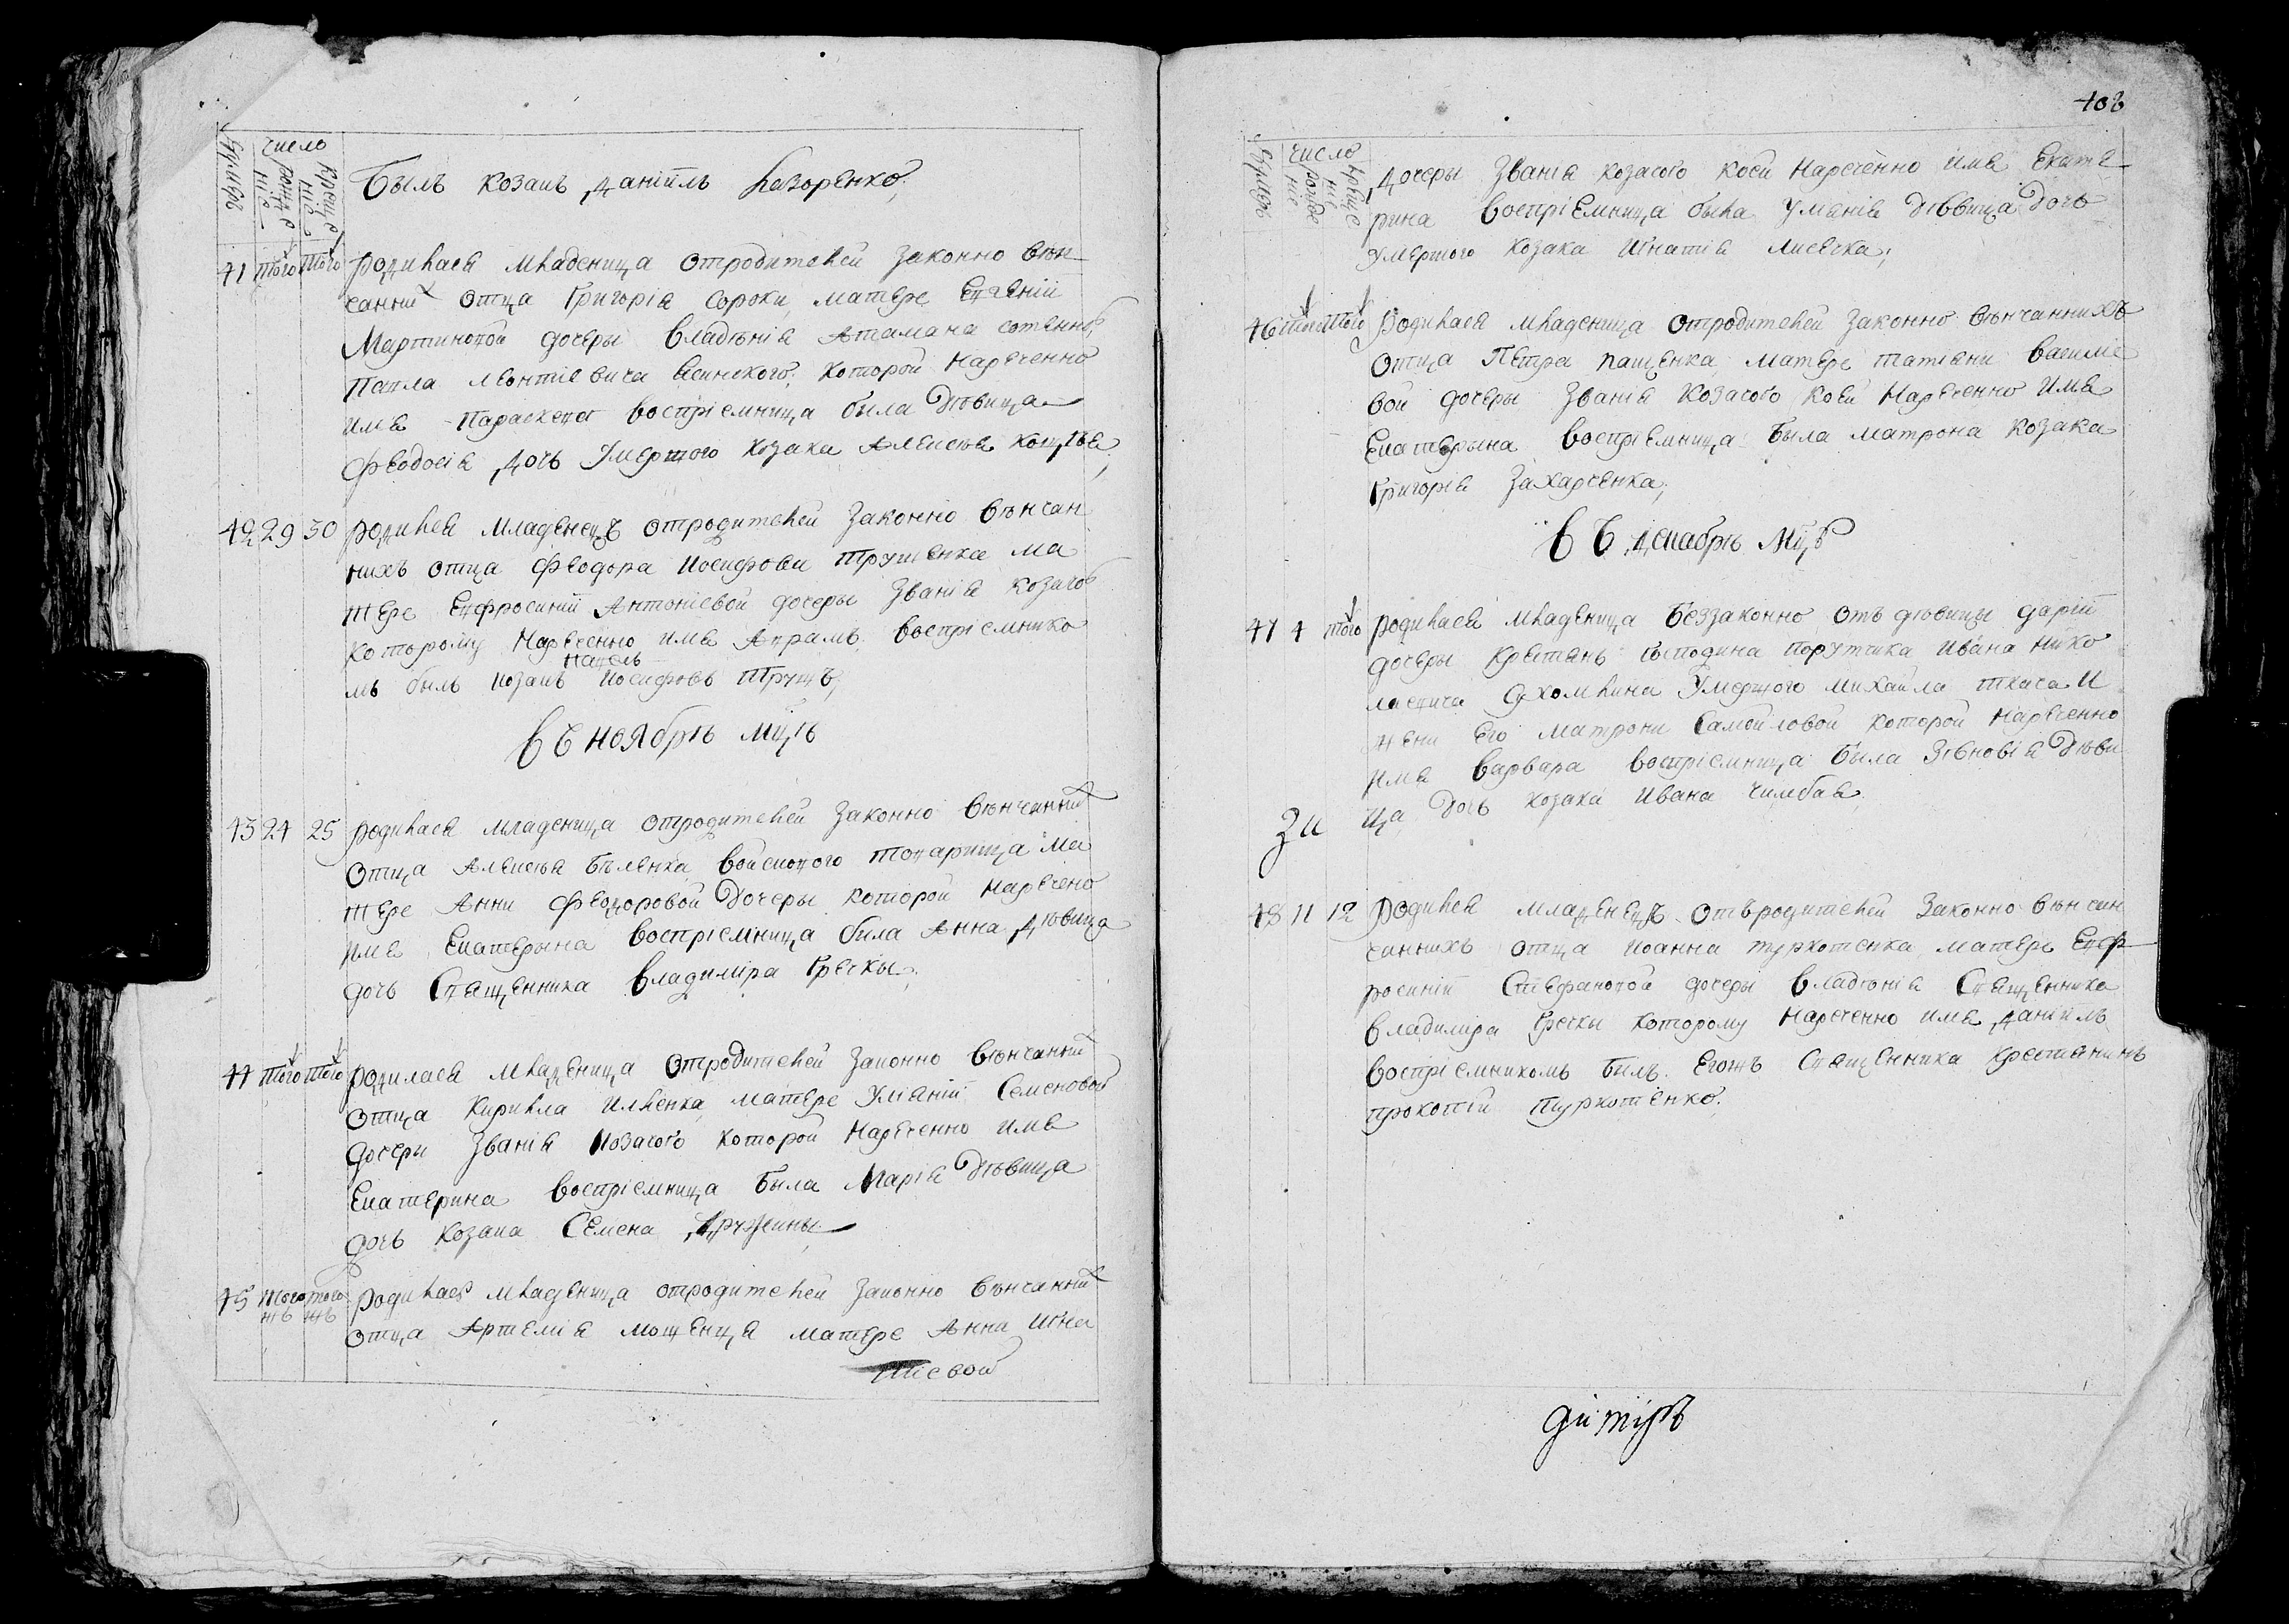 число
нумеръ
рожде
ніе
креще
ніе
Былъ козакъ Даніилъ Назоренко,
41 того того родилася младеница отродителей законно вѣн
чанних отца Григорія Сороки матере Евгеніи
Мартиновой дочеры владѣнія Атамана сотенного
Павла Леонтіевича Ясинского, которой нареченно
имя Параскева восприемница была дѣвица
Феодосія дочь умершого козака Алексѣя
42 29 30 родился младенецъ отродителей законно вѣнчан
нихъ отца Феодора Иосифова Трушенка ма
тере Евфросиніи Антоніевой дочеры званія козачого
которому нареченно имя Аврамъ восприемнико
Павелъ
мъ былъ козакъ Иосифовъ Трушъ,
въ ноябрѣ мцѣ
43 24 25 родилася младеница отродителей законно вѣнчанних
отца Алексѣя Бѣленка войскового товарища ма
тере Анни Феодоровой дочеры которой наречено
имя Екатерына восприемница была Анна дѣвица
дочь Священника Владиміра Гречкы,
44 того того родилася младеница отродителей законно вѣнчанних
отца Кирилла Илченка матере Уліянии Семеновой
дочери званія козачого которой нареченно имя
Екатерина восприемница была Марія дѣвица
дочь козака Семена Дружины
45 того того
жъ жъ
родилася младеница отродителей законно вѣнчанних
отца Артемія Мощенця матере Анна Игна
тіевой
408
число
нумеръ
рожде
ніе
креще
ніе
дочеры званія козачого коей нареченно имя Екате
рина восприемница была Уляніа дѣвица дочь
умершого козака Игнатія Лисечка,
46 того того родилася младеница отродителей законно вѣнчаннихъ
отца Петра Пащенка матере Татіяни Василіе
вой дочеры званія козачого коей нареченно имя
Екатерына восприемница была Матрона козака
Григорія Захарченка,
въ декабрѣ мцѣ
47 4 того родилася младеница беззаконно отъ дѣвицы Даріи
дочеры крестянъ господина порутчика Ивана Нико
лаевича умершого Михайла Ткача и
жени его Матрони Самойловой которой нареченно
имя Варвара восприемница была Зѣновія дѣви
ца дочь козака Ивана Чимбая,
48 11 12 родился младенецъ отъродителей законно вѣнчан
чаннихъ отца Иоанна Пуркотенка матере Евф
росиніи Стефановой дочеры владѣнія Священника
Владиміра Гречки которому нареченно имя Даніилъ
восприемникомъ былъ егожъ Священника крестянинъ
Прокопій Пуркотенко.